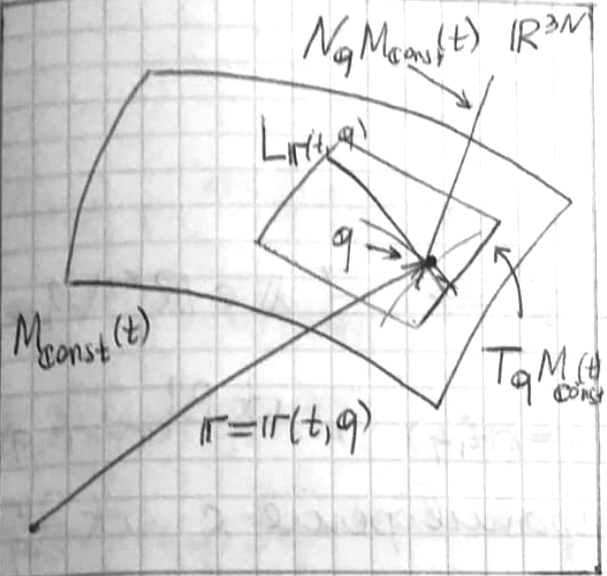 N_q M_const(t) ℝ^3N
L_𝕣(t,q)
q
M_const(t)
T_q M_const(t)
𝕣=𝕣(t,q)